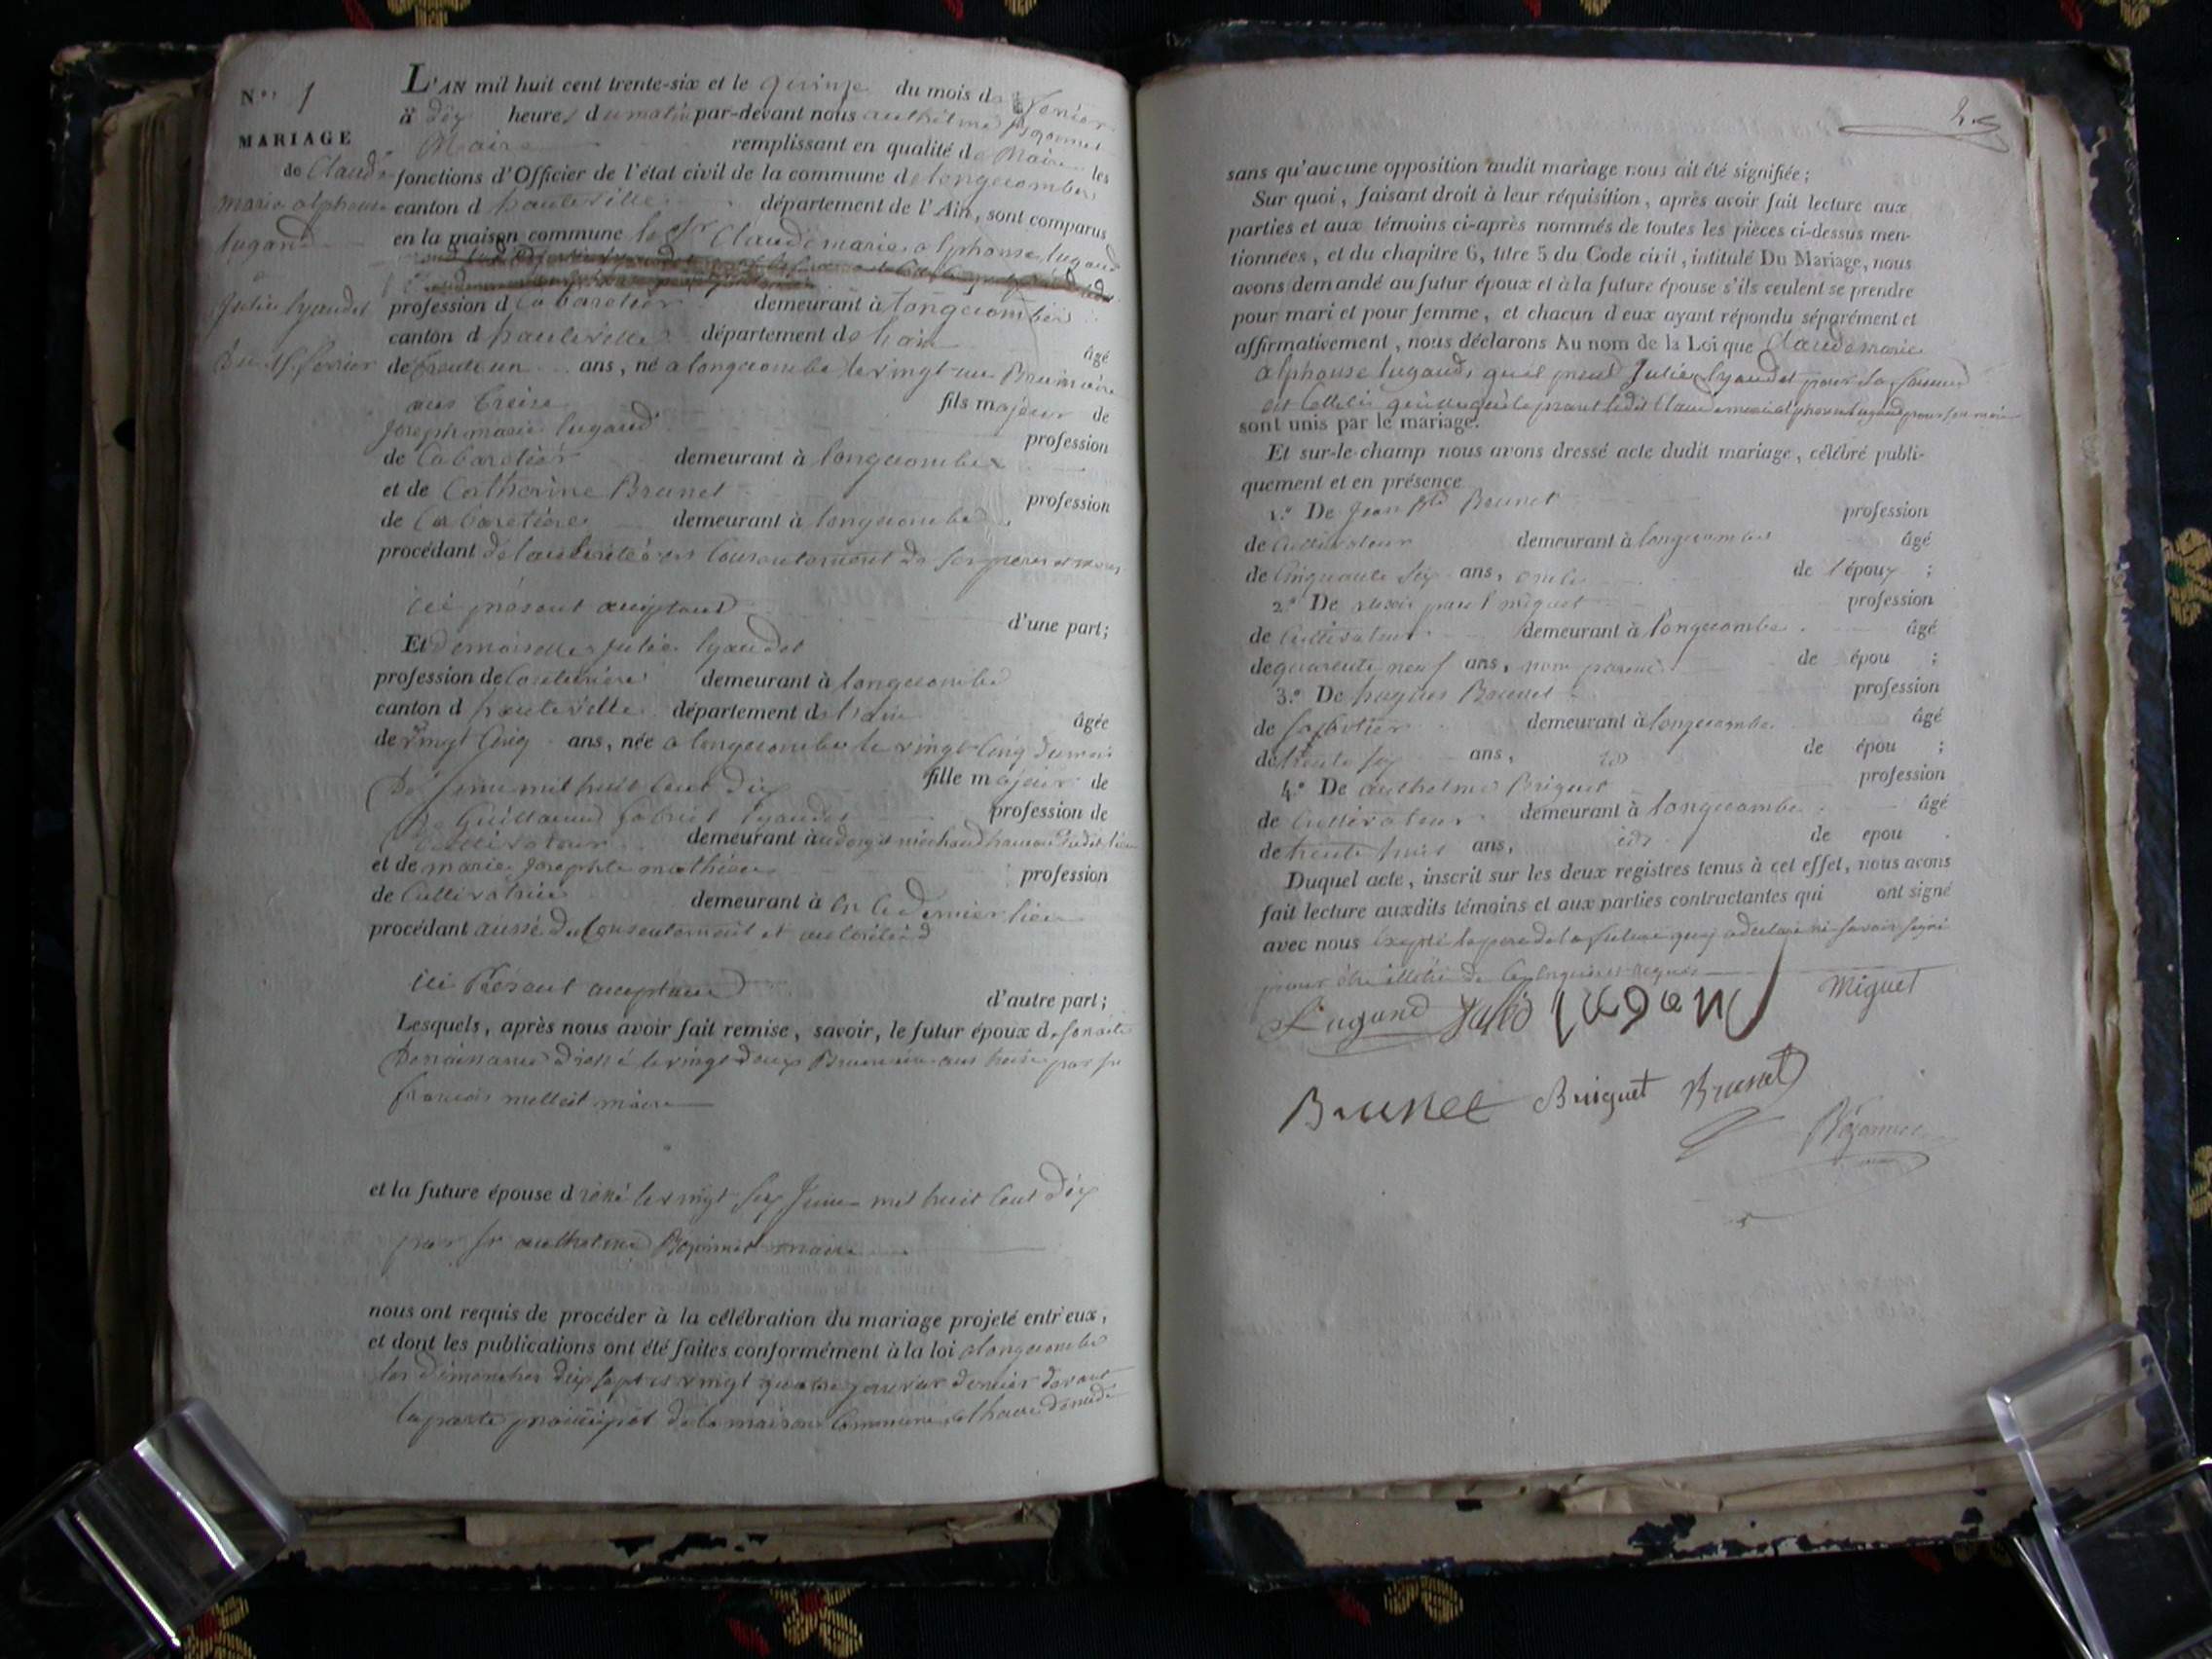 N.º 1
MARIAGE
de Claude
marie alphonse
lugand
Julie lyaudet
Du 15 fevrier
L'AN mil huit cent trente-six et le quinze du mois de fevrier
à dix heures du matin par-devant nous anthelme
Maire remplissant en qualité de Maire les
fonctions d'Officier de l'état civil de la commune de longecombe
canton d hauteville département de l'Ain, sont comparus
en la maison commune le Sr Claude marie alphonse lugand
profession d Cabaretier demeurant à longecombe
canton d hauteville département de lain âgé
de trente un ans, né a longecombe le vingt un Brumaire
ans treize fils majeur de
Joseph marie lugand profession
de Cabaretier demeurant à longecombe
et de Catherine Brunet profession
de Cabaretière demeurant à longecombe
procédant de l'autorité et consentement de ses pere et mere
ici présent acceptant d'une part;
Et demoiselle Julie lyaudet
profession de Couturière demeurant à longecombe
canton d hauteville département de lain âgée
de vingt cinq ans, née a longecombe le vingt cinq du mois
De Juin mil huit cent dix fille majeur de
De Guillaume gabriel lyaudet profession de
Cultivateur demeurant à
et de marie Josephte mathieu profession
de Cultivatrice demeurant à en ce dernier lieu
procédant aussi du Consentement et autorité d
ici Présent acceptant d'autre part;
Lesquels, après nous avoir fait remise, savoir, le futur époux de son acte
De naissance dressé le vingt deux Brumaire ans treize par sr
francois maire
et la future épouse d ressé le vingt six Juin mil huit cent dix
par sr anthelme maire
nous ont requis de procéder à la célébration du mariage projeté entr'eux,
et dont les publications ont été faites conformément à la loi a longecombe
les Dimanches dix sept et vingt quatre janvier dernier devant
la porte principal de la maison Commune a l'heure de midi
2
sans qu'aucune opposition audit mariage nous ait été signifiée;
Sur quoi, faisant droit à leur réquisition, après avoir fait lecture aux
parties et aux témoins ci-après nommés de toutes les pièces ci-dessus men-
tionnées, et du chapitre 6, titre 5 du Code civil, intitulé Du Mariage, nous
avons demandé au futur époux et à la future épouse s'ils veulent se prendre
pour mari et pour femme, et chacun d'eux ayant répondu séparément et
affirmativement, nous déclarons Au nom de la Loi que Claude marie
alphonse lugand, qu'il prend Julie lyaudet pour sa femme
et Celle ci qu'elle prend ledit Claude marie alphonse lugand pour son mari
sont unis par le mariage.
Et sur-le-champ nous avons dressé acte dudit mariage, célébré publi-
quement et en présence
1.º De Jean Bte Brunet profession
de Cultivateur demeurant à longecombe âgé
de Cinquante six ans, oncle de l'époux;
2.º De paul miguet profession
de Cultivateur demeurant à longecombe âgé
de quarante neuf ans, non parent de épou;
3.º De hugues Brunet profession
de Sabotier demeurant à longecombe âgé
de trente six ans, id de épou;
4.º De anthelme Briguet profession
de Cultivateur demeurant à longecombe âgé
de trente huit ans, id de epou
Duquel acte, inscrit sur les deux registres tenus à cet effet, nous avons
fait lecture auxdits témoins et aux parties contractantes qui ont signé
avec nous Excepté le pere de la future qui a declaré ne savoir signé
pour être illétré de ce enquis et requis
Lugand Miguet
Brunet Briguet Brunet